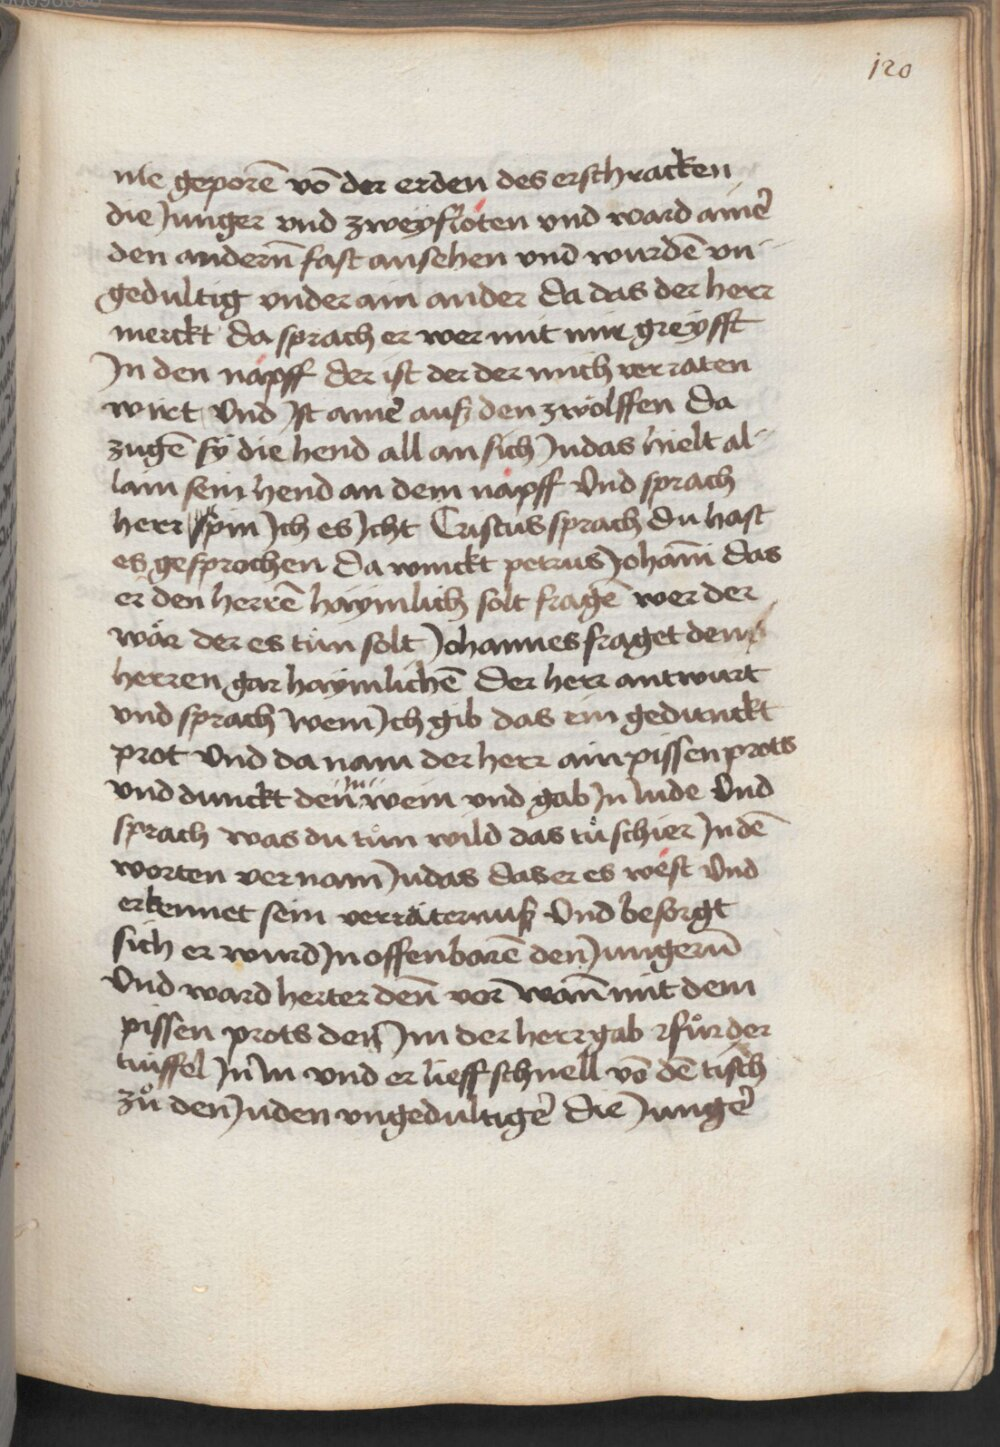 120
nie geporē vō der erden des erschracken
die Junger vnd zweyfloten vnd ward ainer
den andern̄ fast ansehen vnd wurdē vn-
gedultig vnder ain ander Da das der herr
merckt Da sprach er wer mit mir greyfft
Jn den napff Der ist der der mich verraten
wirt Vnd Jst ainer auß den zwölffen Da
zugē sy die hend all an sich Judas hielt al-
lain sein hend an dem napff Vnd sprach
herr pin Jch es Jcht Cristus sprach Du hast
es gesprochen Da winckt petrus Johan̄i das
er den herrē haymlich solt fragē wer der
wär der es tůn solt Johannes fraget den
herren gar haymlichē Der herr antwurt
vnd sprach wem Jch gib das ein gedunckt
prot Vnd da nam der herr ain pissen prots
vnd dunckt den Jn wein vnd gab Jn Jude Vnd
sprach was du tůn wild das tů schier Jn dē
worten vernam Judas das er es west Vnd
erkennet sein verräternuß Vnd besorgt
sich er wurd Jn offenbarē den Jungern̄
Vnd ward herter den̄ vor wan̄ mit dem
pissen prots den Jm der herr gab fůr der
tuiffel Jn Jn vnd er lieff schnell vō dē tisch
zů den Juden vngedultiger Die Junger